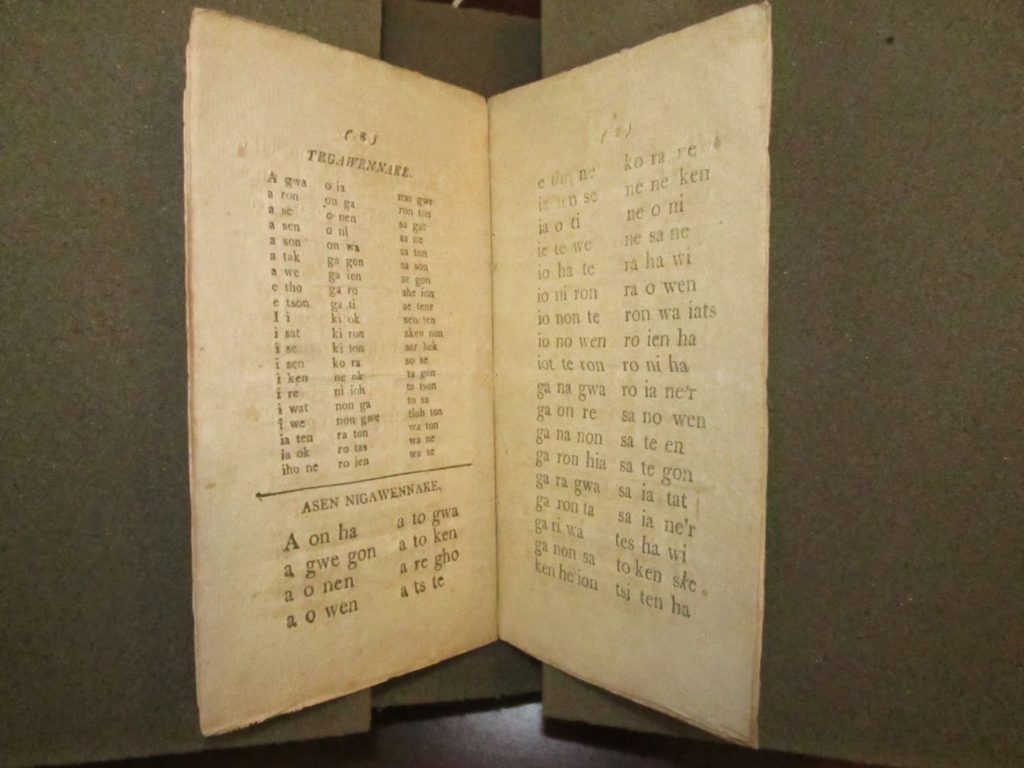 ( 8 )
TEGAWENNAKE.
A gwa o ia ron gwe
a ron on ga ron ton
a se o nen sa gat
a sen o ni sa ne
a son on wa sa ton
a tak ga gon sa son
a we ga ien se gon
e tho ga ro she ion
e tson ga ti se tene
I i ki ok sen ten
i sat ki ron sken non
i se ki ton ser hek
i sen ko ra so se
i ken ne ok ta gon
i re ni ioh ta tson
i wat non ga to sa
I we non gwe tioh ton
ia ten ra ton wa ton
ia ok ro tas wa ne
iho ne ro ien wa se
ASEN NIGAWENNAKE,
A on ha a to gwa
a gwe gon a to ken
a o nen a re gho
a o wen a ts te
( 9 )
e tho ne ko ra re
ia ten se ne ne ken
ia o ti ne o ni
ie te we ne sa ne
io ha te ra ha wi
io ni ron ra o wen
io non te ron wa iats
io no wen ro ien ha
iot te ron ro ni ha
ga na gwa ro ia ne'r
ga on re sa no wen
ga na non sa te en
ga ron hia sa te gon
ga ra gwa sa ia tat
ga ron ta sa ia ne'r
ga ri wa tes ha wi
ga non sa to ken ske
ken he ion tsi ten ha